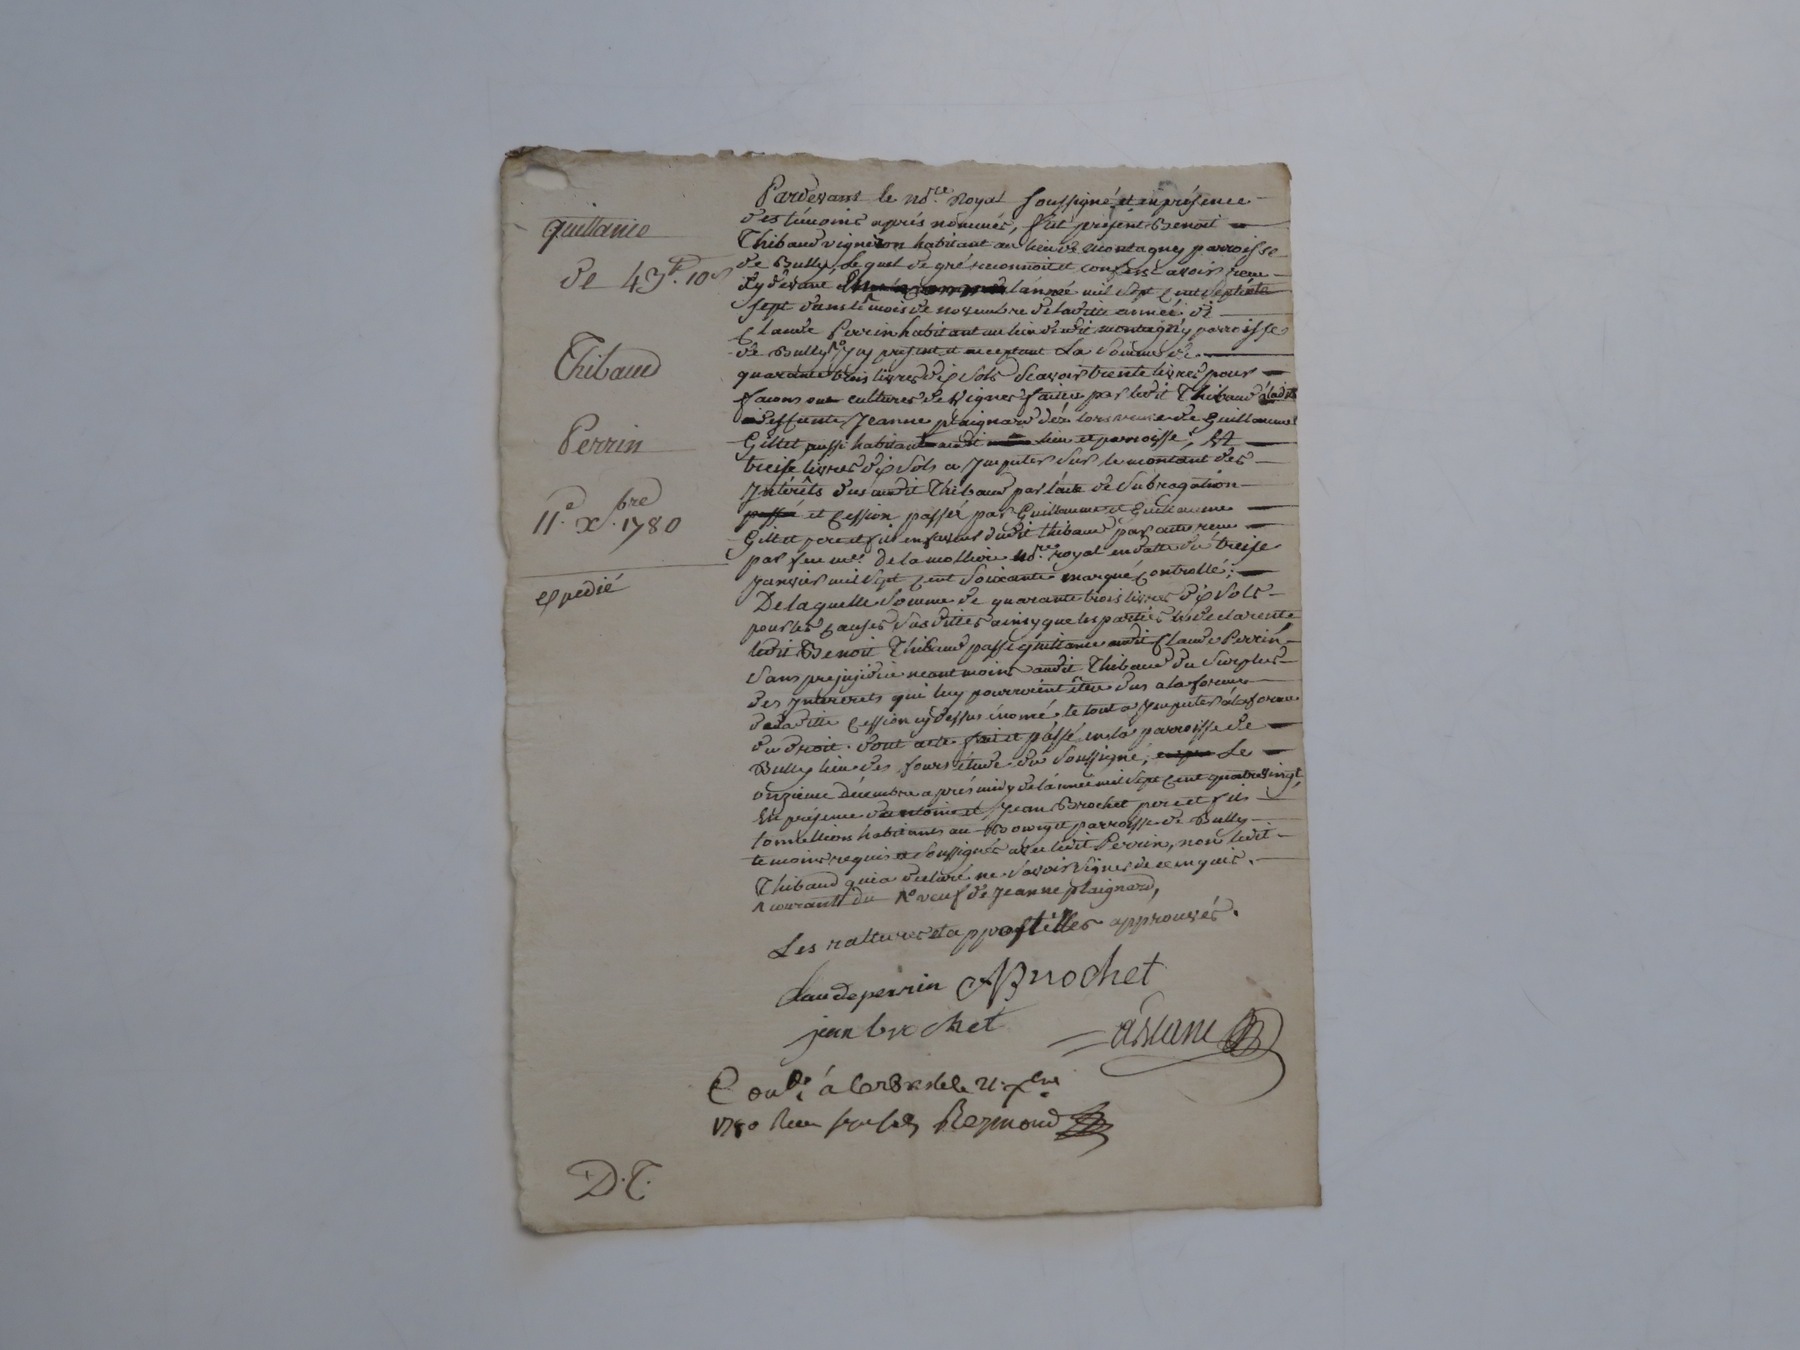 quittance
de 43ᵗᵗ. 10ˢ
Thibaud
Perrin
11ᵉ. Xbre. 1780
expedié
Pardevant le nore. Royal soussigné et en présence
des témoins après nommés, fut présent Benoit
Thibaud vigneron habitant au lieu de Montagny parroisse
de Bully, lequel de gré reconnoit et confesse avoir reçu
cydevant l'année mil sept cent septente
sept dans le mois de novembre de ladite année de
Claude Perrin habitant au lieu dudit montagny parroisse
de Bully icy présent et acceptant La somme de
quarante trois livres dix sols sçavoir trente livres pour
façons ou cultures de vignes faites par ledit Thibaud à ladite
deffunte Jeanne plaignard dez lors veuve de Guillaume
Gillet aussi habitant audit lieu et parroisse, Et
treise livres dix sols a Imputer sur le montant des
Intérêts dus audit Thibaud par l'acte de subrogation
passé et cession passée par Guillaume et Guillaume
Gillet pere et fils en faveur dudit thibaud par acte reçu
par feu me. delamolliere nore. royal en datte du treise
janvier mil sept cent soixante marqué controllé;
De laquelle somme de quarante trois livres dix sols
pour les causes susdittes ainsy que les parties le déclarent
ledit Benoit Thibaud passe quittance audit Claude Perrin
sans préjudice neant moins audit Thibaud du surplus
des Interets qui luy pourroient être dus a la forme
de ladite cession cy dessus énoncé le tout a Imputer à la forme
du droit. dont acte fait et passé en la parroisse de
Bully lieu des fours étude du soussigné, Le
onzieme décembre après midy de l'année mil sept cent quatrevingt,
En présence d'antoine et Jean Brochet pere et fils
habitants au Bourg et parroisse de Bully
temoins requis et soussignés avec ledit Perrin, non ledit
Thibaud qui a declaré ne sçavoir signer de ce enquis.
veuf de Jeanne plaignard,
Les ratures et appostilles approuvés.
Claude perrin ABrochet
jean brochet
Contlé. à le 21. Xbre
1780 Reçu Reymond
D.T.